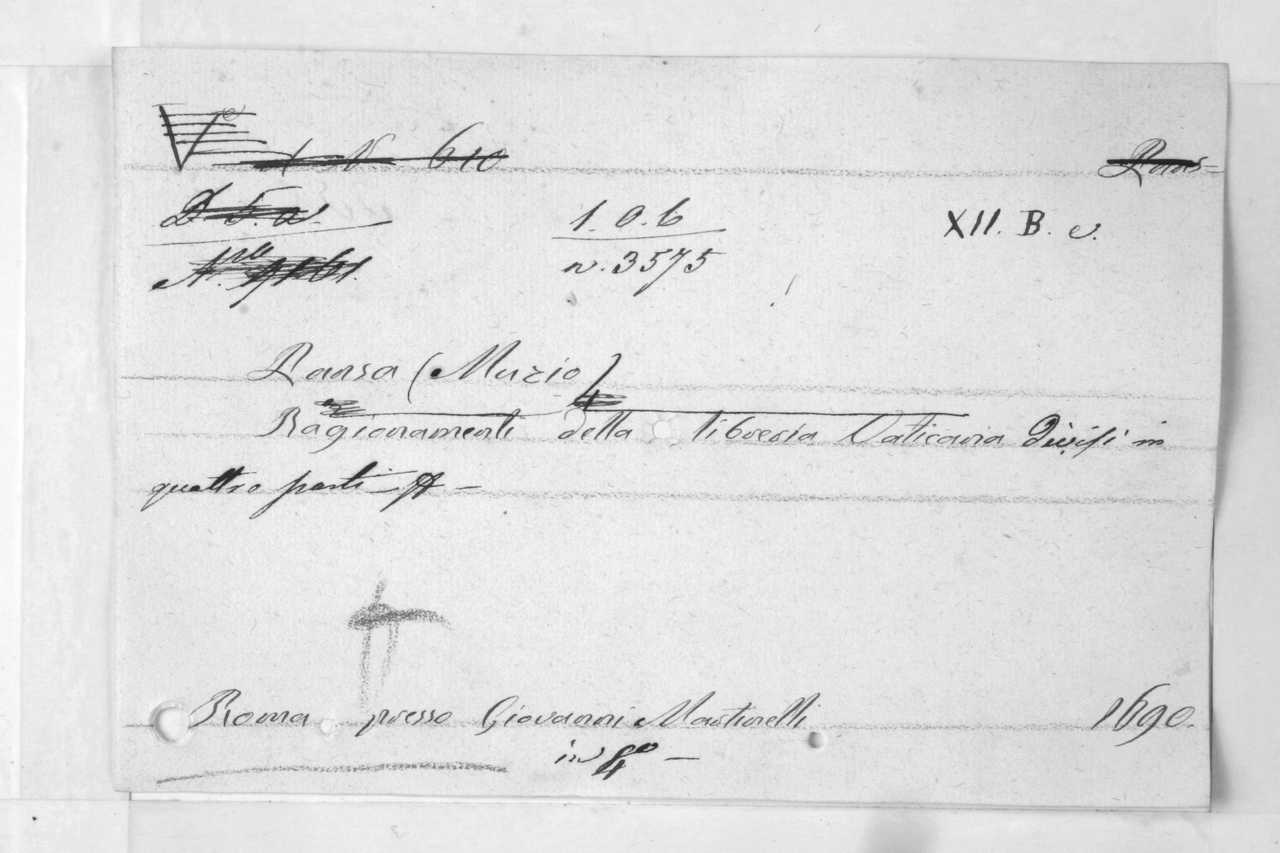 610
1. o. 6
n. 3575
XII. B. c.
Pansa (Muzio)
Ragionamenti della libreria Vaticana Divisi in
quattro parti —
Roma presso Giovanni Martinelli 1690.
in 4º —